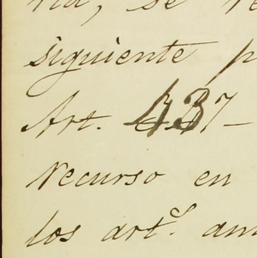 se
siguiente p
Art. 437-
recurso en
los artˢ. an